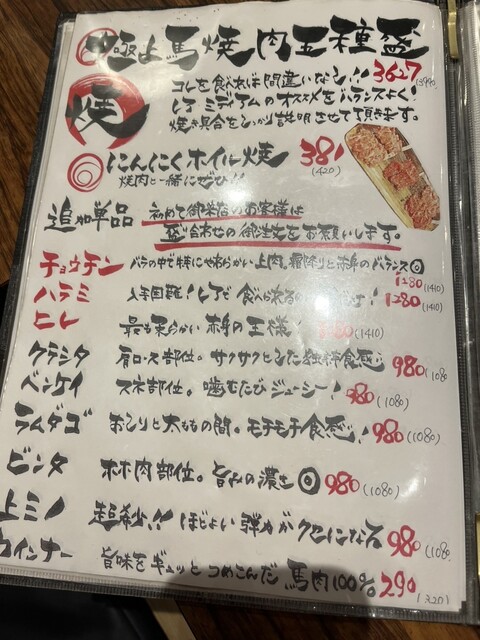 極上馬焼肉五種盛
3627
コレを食べれば間違いなし!!
レア ミディアムのオススメをバランスよく!
焼き具合をしっかり説明させて頂きます。
焼
にんにくホイル焼 381
(420)
焼肉と一緒にぜひ!!
追加単品
初めて御来店のお客様は
盛り合わせの御注文をお願いします。
チョウチン バラの中で特にやわらかい上肉。霜降りと赤身のバランス◎
1280 (1410)
ハラミ 入手困難!レアで食べ 1280
(1410)
ヒレ 最も柔らかい赤身の王様! (1410)
クラシタ 肩ロース部位。サクサクとした独特食感 980 (1080
ベンケイ スネ部位。噛むたびジューシー! 980 (1080)
ラムダゴ おしりと太ももの間。モチモチ食感! 980 (1080)
ビンタ ホホ肉部位。旨みの濃さ◎ 980 (1080)
上ミノ 超希少!! ほどよい弾力がクセになる 980 (1080
ウインナー 旨味をギュッとつめこんだ 馬肉100% 290
(320)